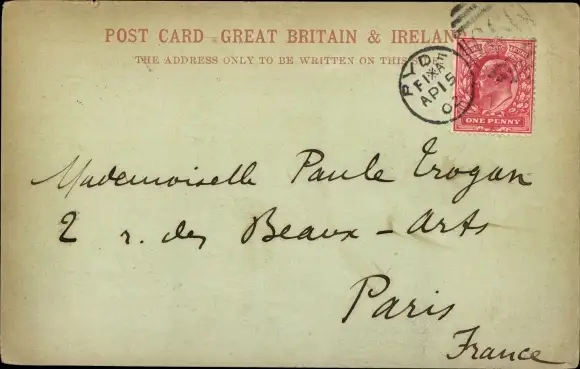 POST CARD - GREAT BRITAIN & IRELAND
THE ADDRESS ONLY TO BE WRITTEN ON THIS
AP 15
02
ONE PENNY
Mademoiselle Paule Trogan
2 r. des Beaux-Arts
Paris
France